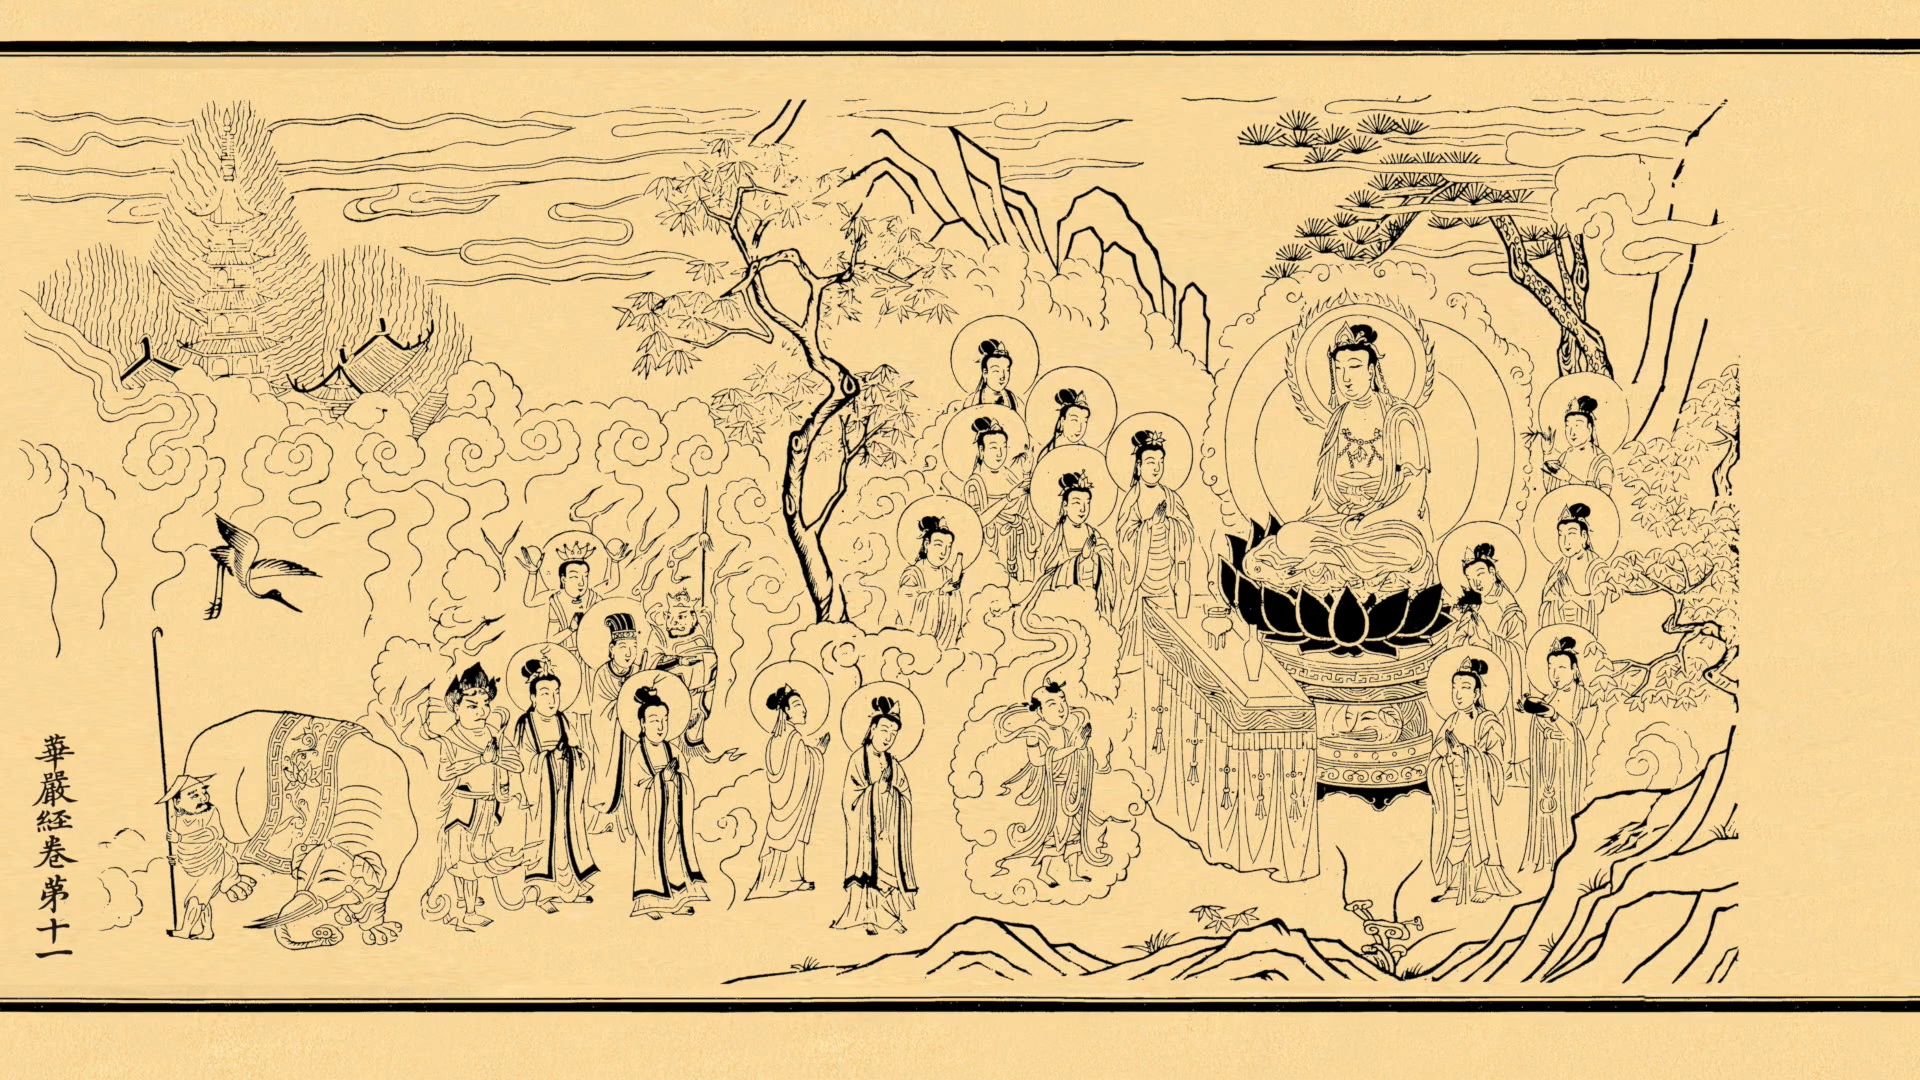 華嚴經卷第十一